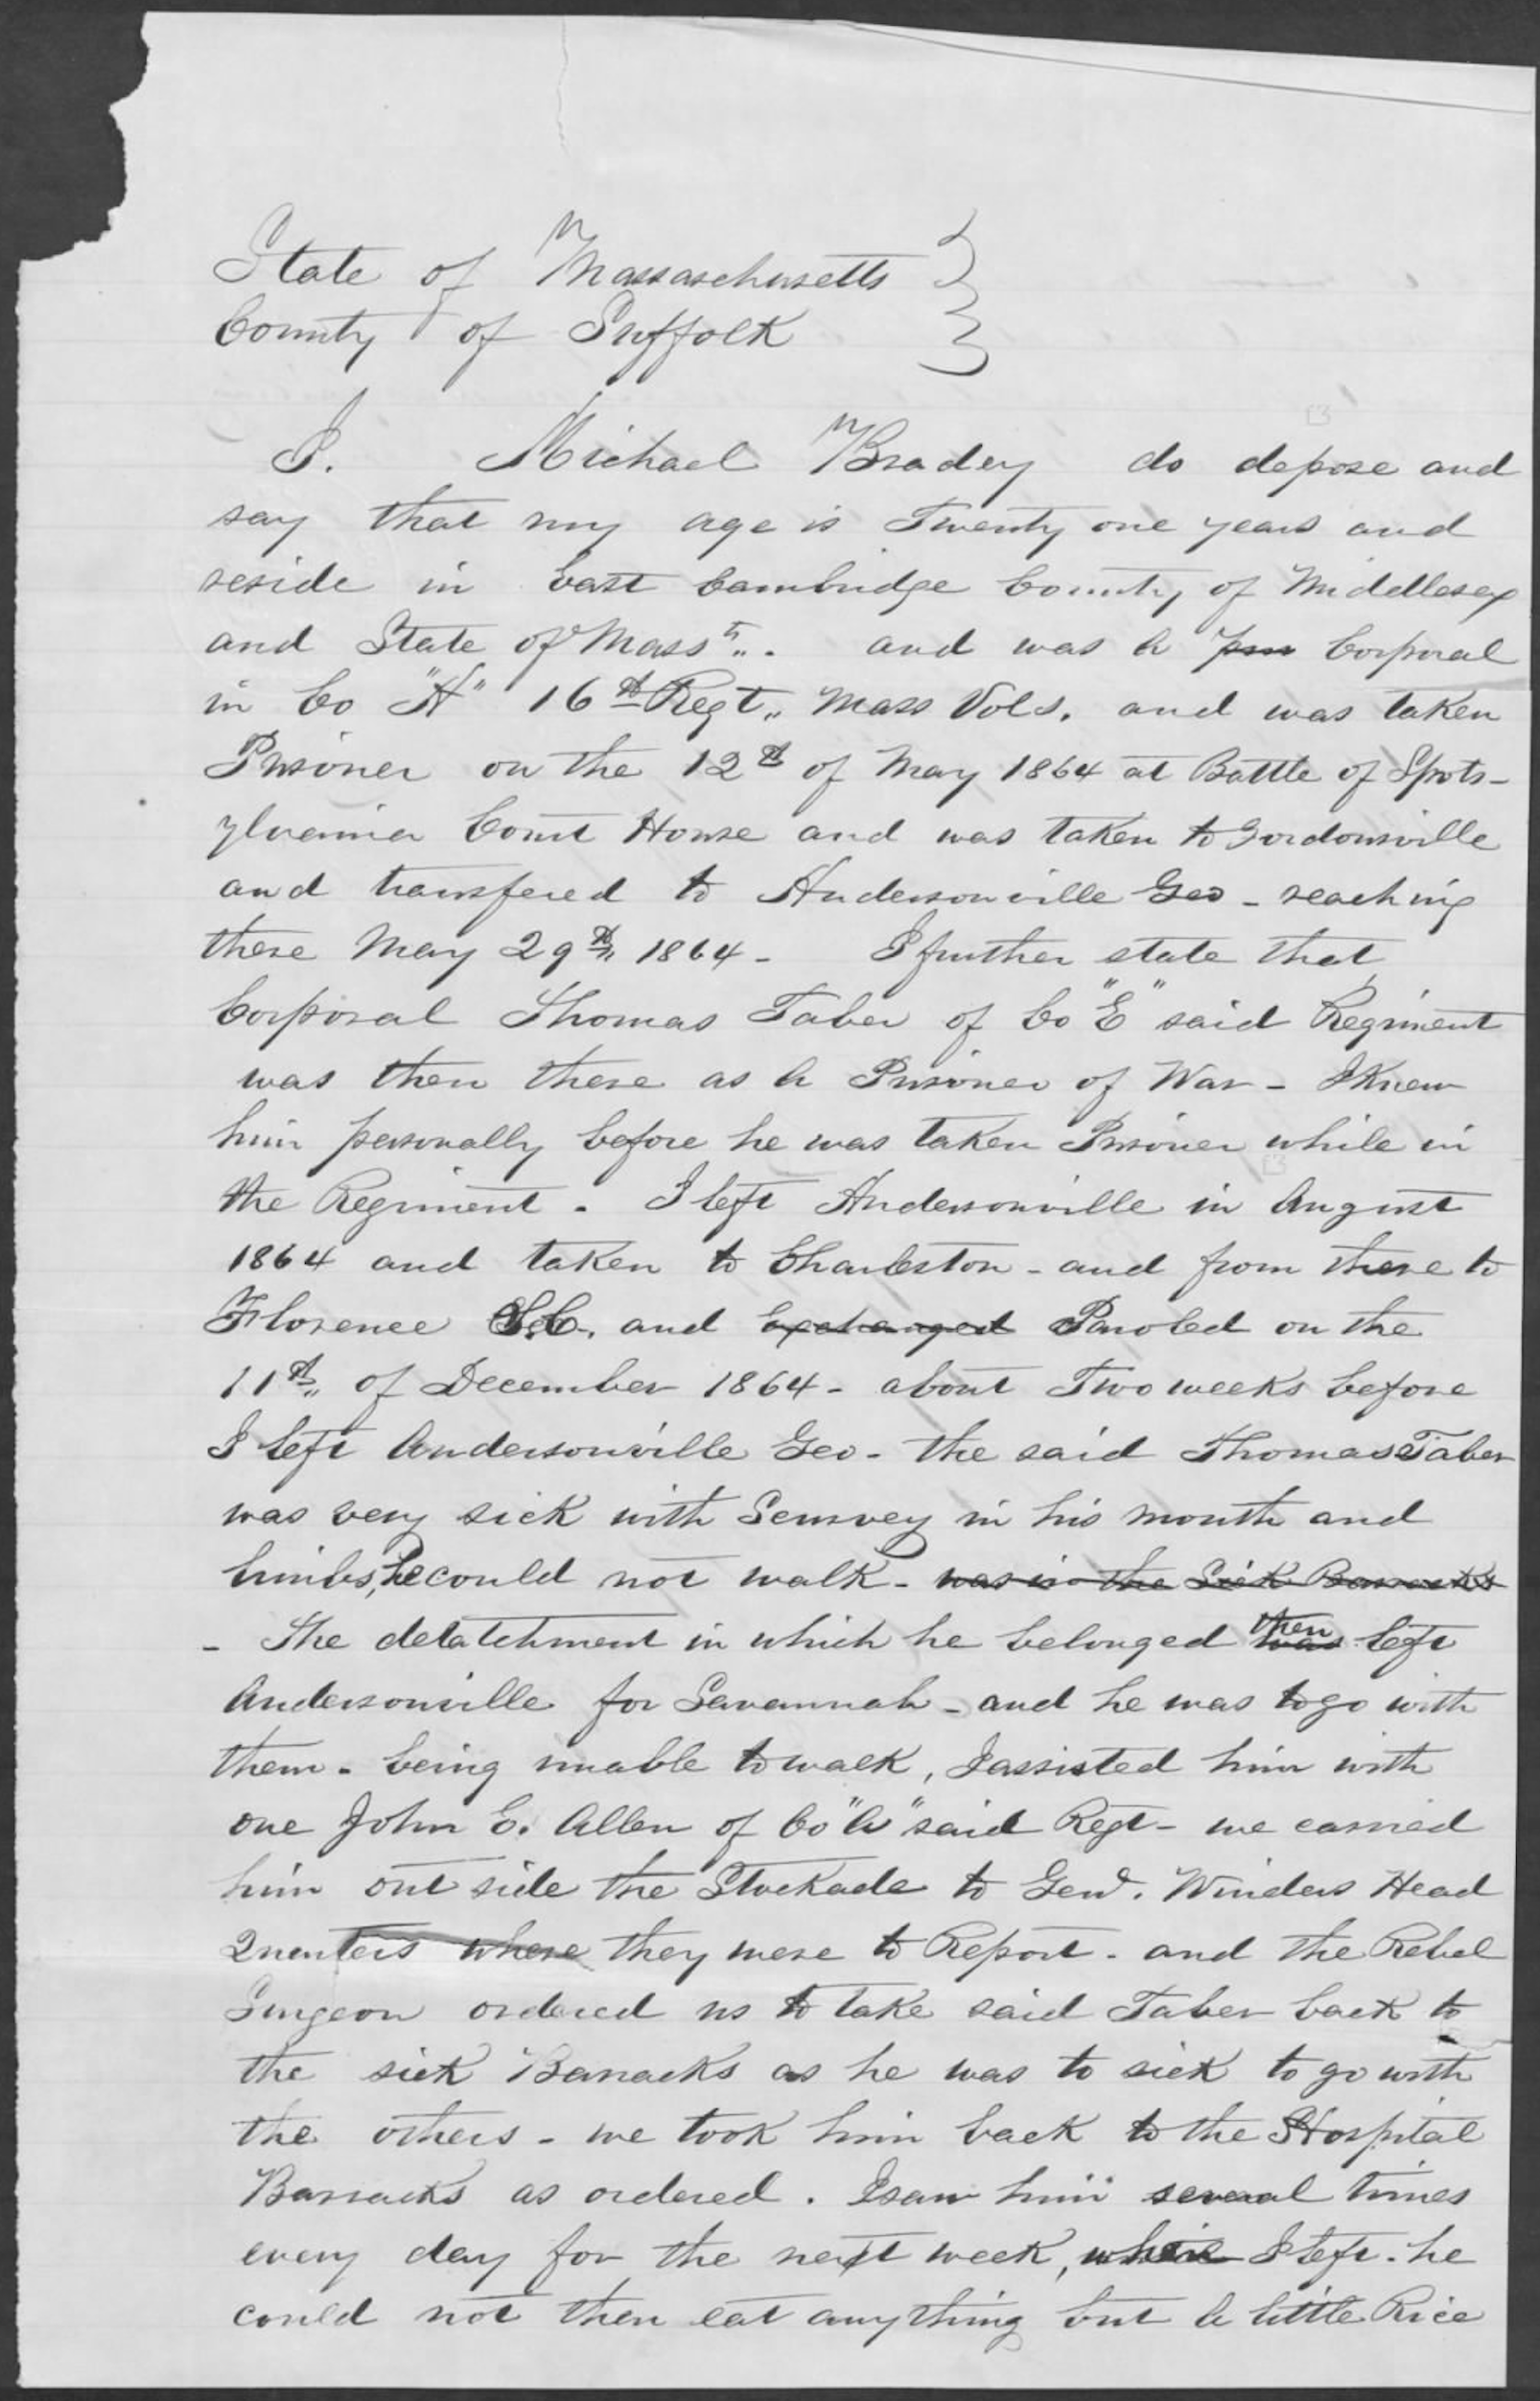 State of Massaschusetts }
County of Suffolk }
I. Michael Bradey do depose and
say that my age is Twenty one years and
reside in East Cambridge County of Middlesex
and State of Mass ts. and was a Corporal
in Co "H" 16th Regt. Mass Vols. and was taken
Prisoner on the 12th of May 1864 at Battle of Spots-
ylvania Court House and was taken to Gordonsville
and transfered to Andersonville Geo - reaching
there May 29th 1864 - I further state that
Corporal Thomas Taber of Co "E" said Regiment
was then there as a Prisoner of War - I Knew
him personally before he was taken Prisoner while in
the Regiment. I left Andersonville in August
1864 and taken to Charleston - and from there to
Florence S.C. and Exchanged Paroled on the
11th of December 1864 - about Two weeks before
I left Andersonville Geo - the said Thomas Taber
was very sick with Scurvey in his mouth and
limbs, he could not walk - was in the Sick Barracks
- The detatchment in which he belonged then was left
Andersonville for Savannah - and he was to go with
them - being unable to walk, I assisted him with
one John E. Allen of Co "A" said Regt - we carried
him out side the Stockade to Genl. Winders Head
Quarters where they were to Report - and the Rebel
Surgeon ordered us to take said Taber back to
the sick Barracks as he was to sick to go with
the others - we took him back to the Hospital
Barracks as ordered. I saw him several times
every day for the next week, when I left. he
could not then eat anything but a little Rice